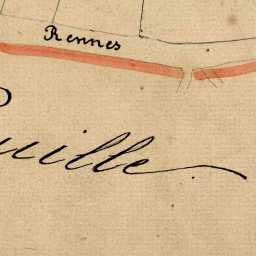 Rennes
uille